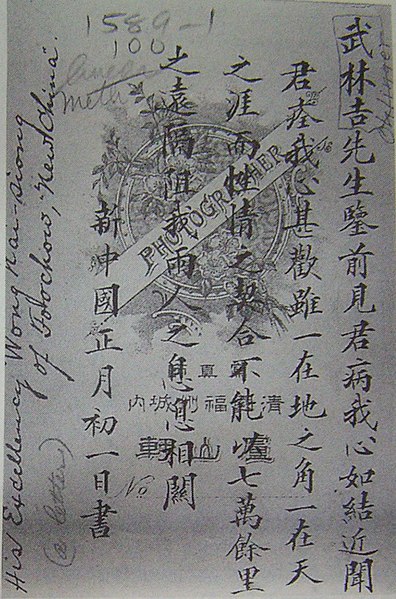 武林吉先生鑒前見君病我心如結近聞
君痊我心甚歡雖一在地之角一在天
之涯而性情之契合不能以七萬餘里
之遠隔阻我兩人之息息相關
新中國正月初一日書
1589-1
100
Meth
His Excellency Wong Nai-Siong
of Foochow, "New China".
(a letter)
PHOTOGRAPHER
清福州城內
廬山軒
No